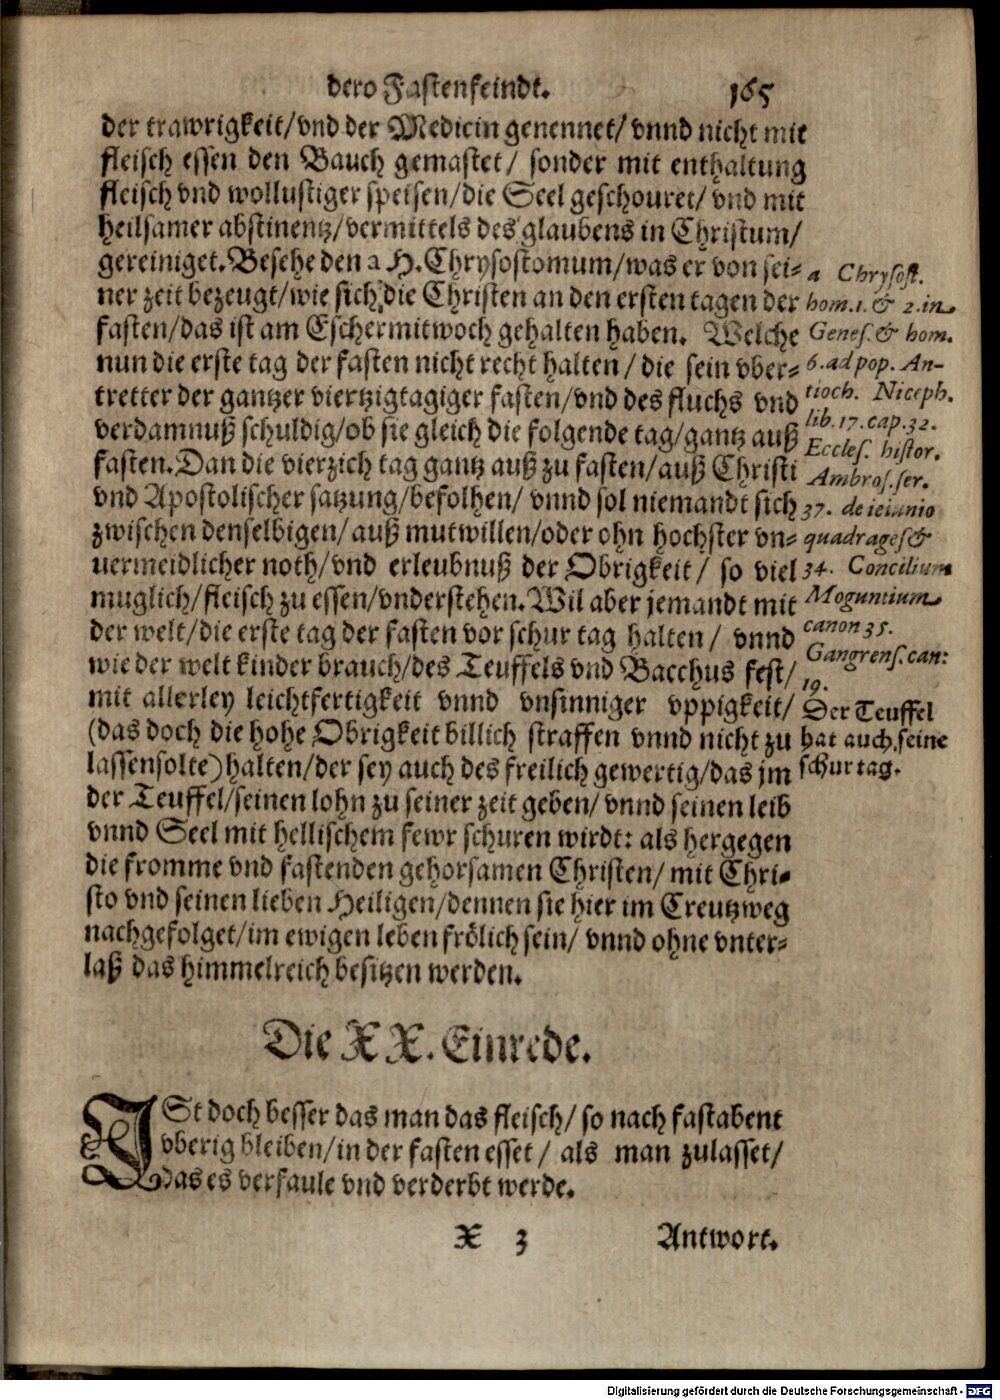 dero Fastenfeindt. 165
der trawrigkeit/vnd der Medicin genennet/vnnd nicht mit
fleisch essen den Bauch gemastet/ sonder mit enthaltung
fleisch vnd wollustiger speisen/die Seel geschouret/ vnd mit
heilsamer abstinentz/vermittels des glaubens in Christum/
gereiniget.Besehe den a H.Chrysostomum/was er von sei-
ner zeit bezeugt/wie sich die Christen an den ersten tagen der
fasten/das ist am Eschermitwoch gehalten haben. Welche
nun die erste tag der fasten nicht recht halten/ die sein vber-
tretter der gantzer viertzigtagiger fasten/vnd des fluchs vnd
verdamnuß schuldig/ob sie gleich die folgende tag/gantz auß
fasten.Dan die vierzich tag gantz auß zu fasten/auß Christi
vnd Apostolischer satzung/befolhen/ vnnd sol niemandt sich
zwischen denselbigen/auß mutwillen/oder ohn hochster vn-
uermeidlicher noth/vnd erleubnuß der Obrigkeit/ so viel
muglich/fleisch zu essen/vnderstehen.Wil aber jemandt mit
der welt/die erste tag der fasten vor schur tag halten/ vnnd
wie der welt kinder brauch/des Teuffels vnd Bacchus fest/
mit allerley leichtfertigkeit vnnd vnsinniger vppigkeit/
(das doch die hohe Obrigkeit billich straffen vnnd nicht zu
lassensolte)halten/der sey auch des freilich gewertig/das jm
der Teuffel/seinen lohn zu seiner zeit geben/ vnnd seinen leib
vnnd Seel mit hellischem fewr schuren wirdt: als hergegen
die fromme vnd fastenden gehorsamen Christen/ mit Chri-
sto vnd seinen lieben Heiligen/dennen sie hier im Creutzweg
nachgefolget/im ewigen leben frölich sein/ vnnd ohne vnter-
laß das himmelreich besitzen werden.
a Chrysost.
hom.1. & 2.in
Genes. & hom.
6.ad pop. An-
tioch. Niceph.
lib.17.cap.32.
Eccles. histor.
Ambros.ser.
37. de ieiunio
quadrages&
34. Concilium
Moguntium
canon 35.
Gangrens.can:
19.
Der Teuffel
hat auch seine
schur tag.
Die XX. Einrede.
ISt doch besser das man das fleisch/ so nach fastabent
vberig bleiben/in der fasten esset/ als man zulasset/
das es verfaule vnd verderbt werde.
X 3 Antwort.
Digitalisierung gefördert durch die Deutsche Forschungsgemeinschaft - DFG